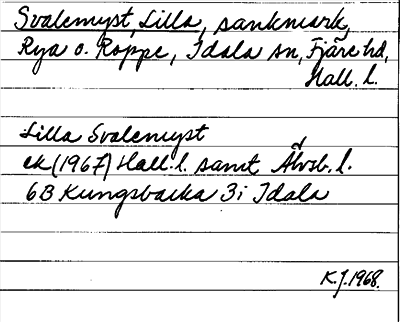 Svalemyst, Lilla, sankmark,
Rya o. Roppe, Idala sn, Fjäre hd,
Hall. l.
Lilla Svalemyst
ek (1967) Hall. l. samt Älvsb. l.
6B Kungsbacka 3i Idala
K.J. 1968.